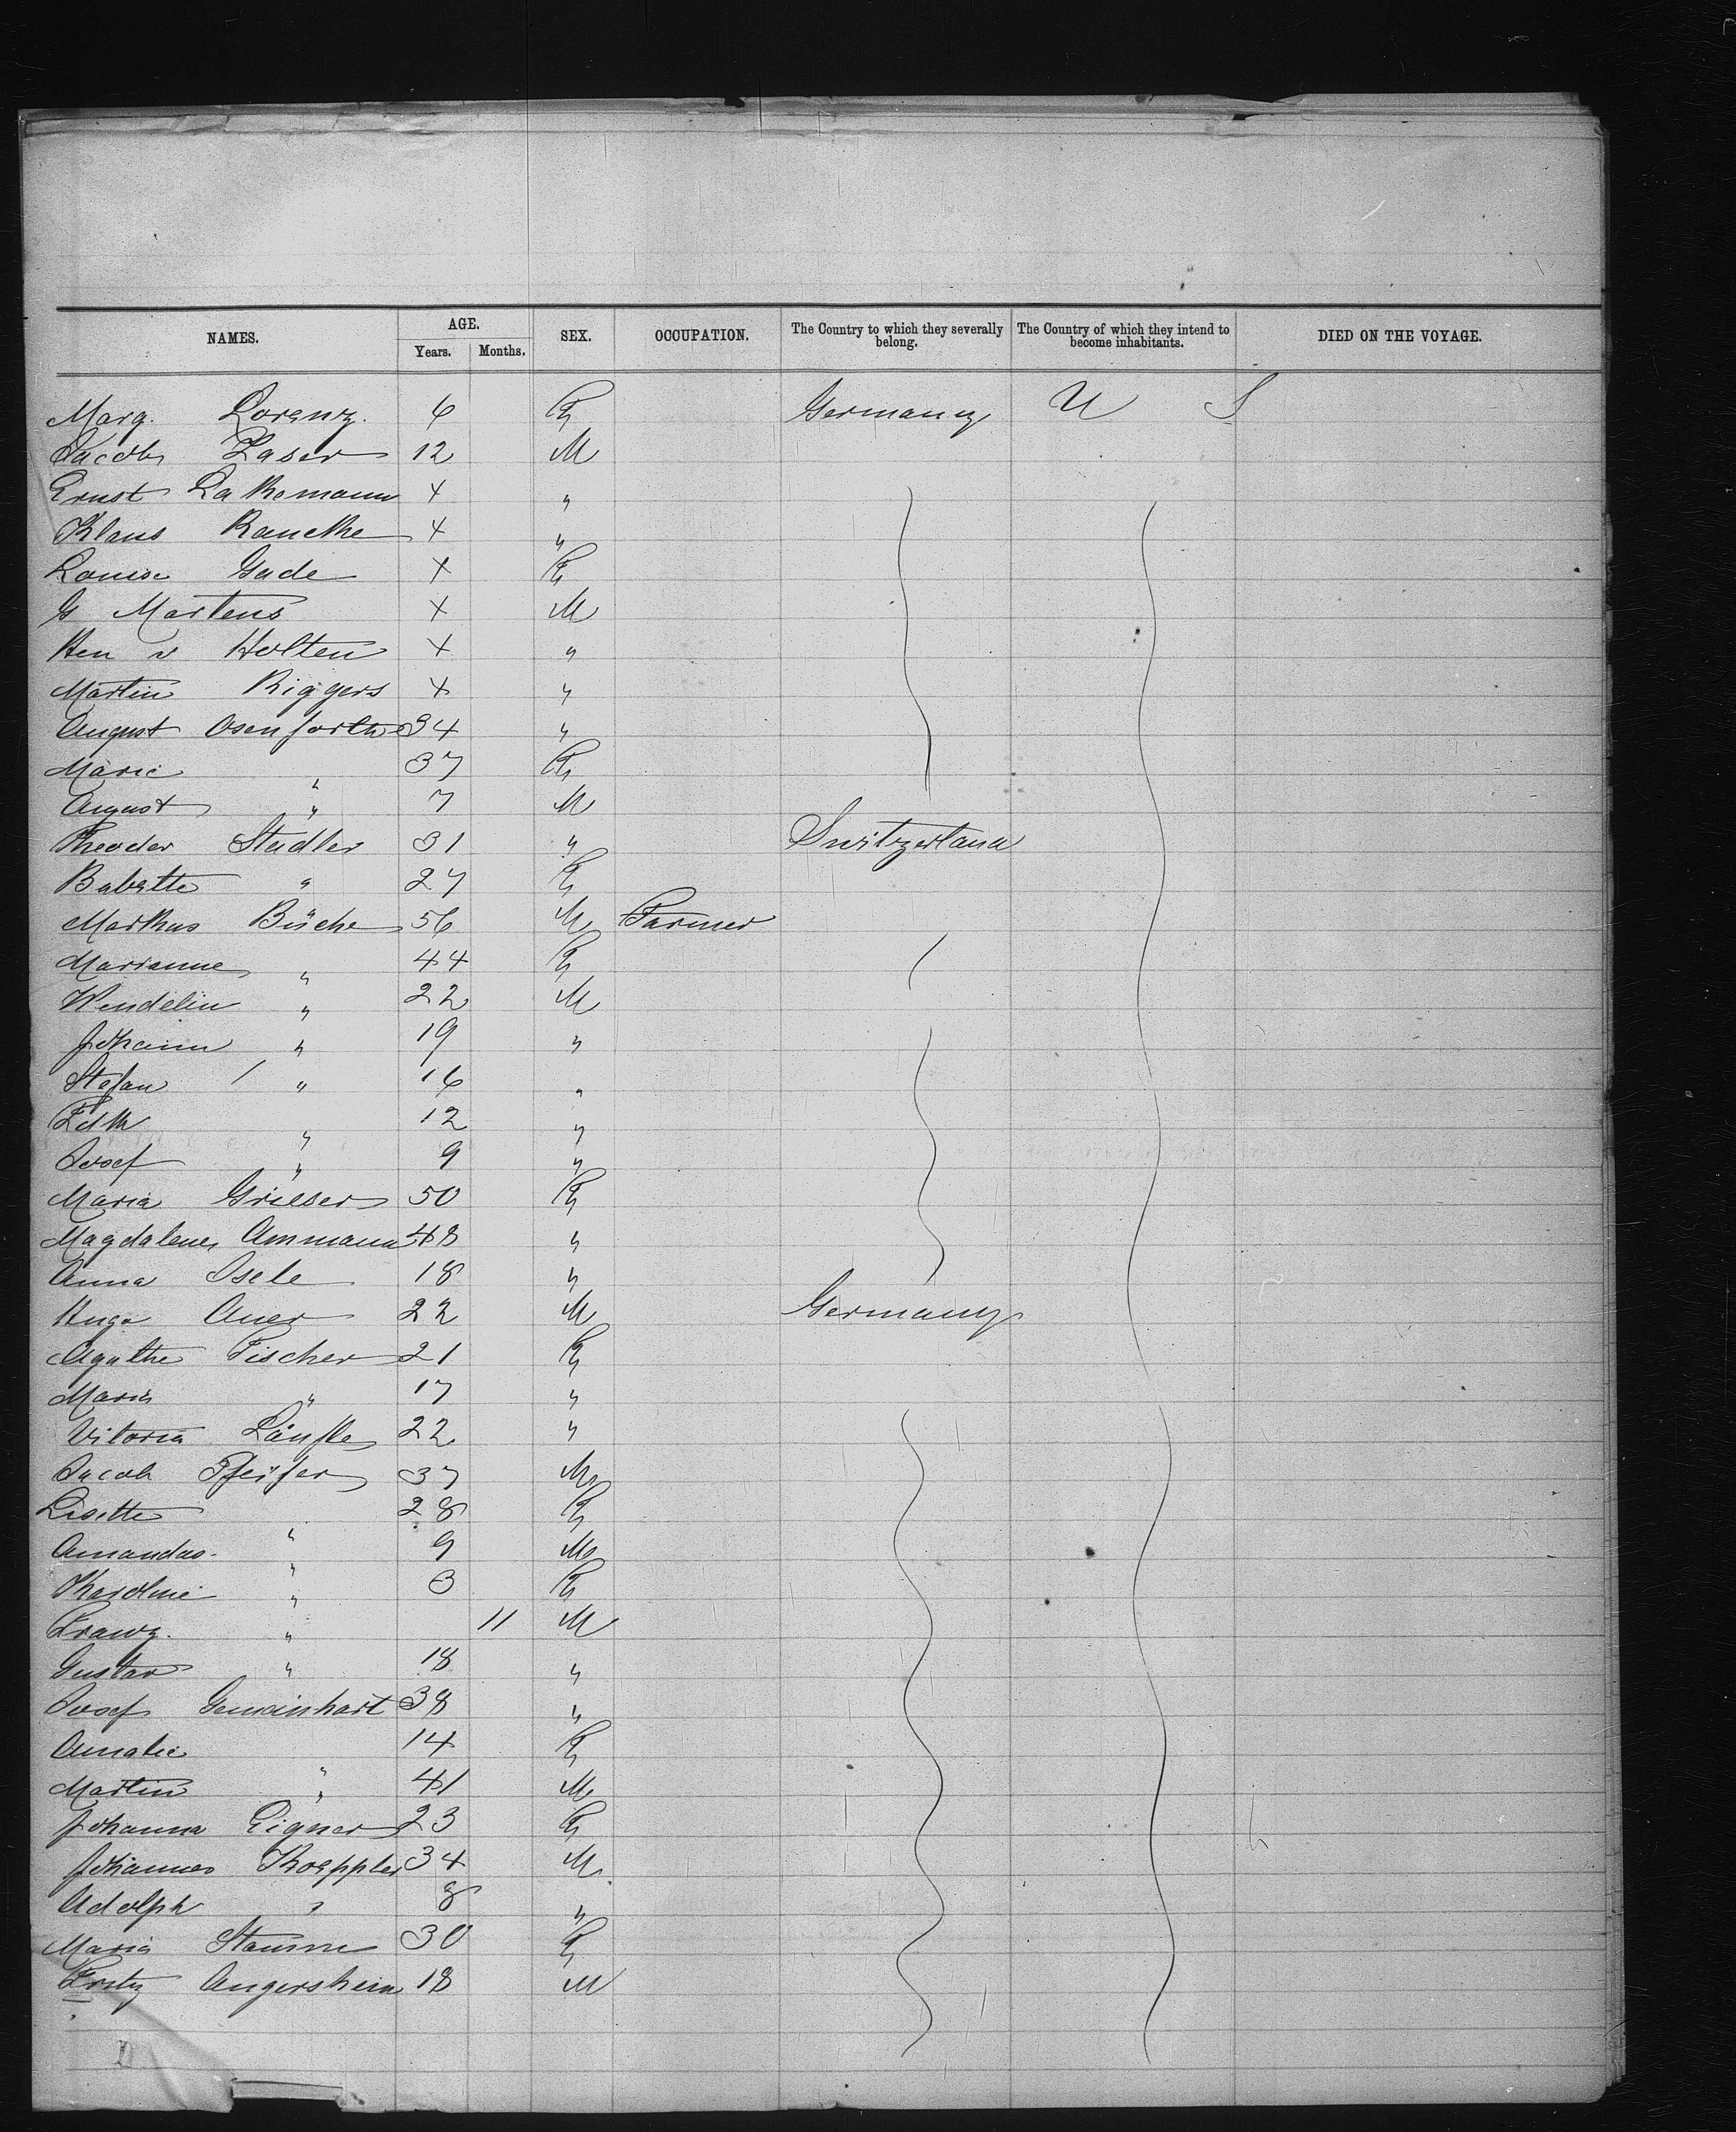 NAMES. AGE. SEX. OCCUPATION. The Country to which they severally belong. The Country of which they intend to become inhabitants. DIED ON THE VOYAGE.
Years. Months.
Marg. Lorenz. 6 F Germany U S
Jacob Laser 12 M
Ernst Lakemann 4 "
Klaus Rancke 4 "
Louise Gade 4 F
G Martens 4 M
Hen v Holten 4 "
Martin Riggers 4 "
August Osenforth 34 "
Marie " 37 F
August " 7 M
Theodor Stadler 31 " Switzerland
Babette " 27 F
Markus Büche 56 M Farmer
Marianne " 44 F
Wendelin " 22 M
Johann " 19 "
Stefan " 16 "
" 12 "
Josef " 9 "
Maria Grieser 50 F
Magdalene Ammann 48 "
Anna Isele 18 "
Hugo Auer 22 M Germany
Agathe Fischer 21 F
Maria " 17 "
Vitoria 22 "
Jacob Pfeifer 37 M
Lisette " 28 F
Amandas " 9 M
Karoline " 3 F
Franz. " 11 M
Gustav " 18 "
Josef Gemeinhart 38 "
Amalie " 14 F
Martin " 41 M
Johanna Eigner 23 F
Johannes Koeppler 34 M
Adolph " 8 "
Maria Stamm 30 F
Angersheim 18 M